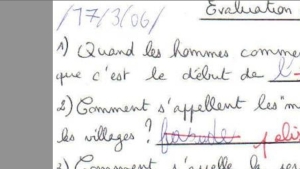 /17/3/06/ Evaluation
1) Quand les hommes comme
que c'est le début de l'
2) Comment s'appellent les "m
les villages ?
3) Comment s'appelle le